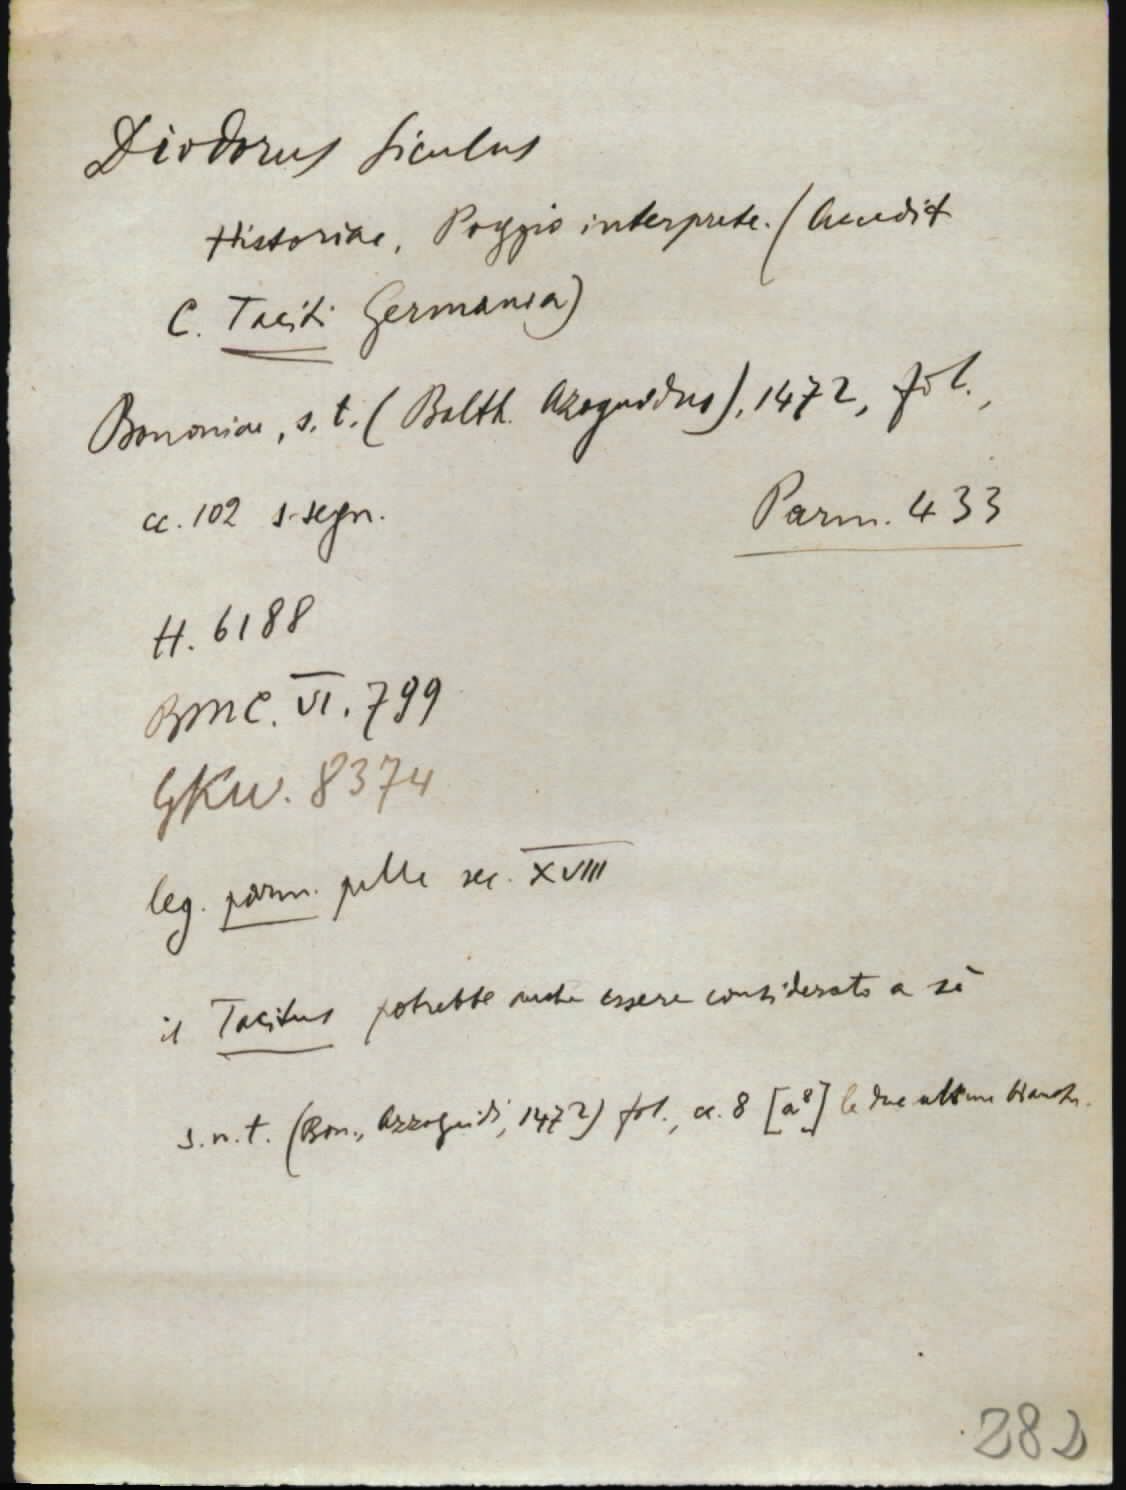 Diodorus Siculus
Historiae, Poggio interprete. (Accedit
C. Taciti Germania)
Bononiae, s. t. (Balth. Azoguidus), 1472, fol.,
cc. 102 s. segn.
Parm. 433
H. 6188
BMC. VI. 799
GKW. 8374
leg. parm. pelle sec. XVIII
il Tacitus potrebbe anche essere considerato a sè
s. n. t. (Bon., Azzoguidi, 1472) fol., cc. 8 [a⁸] le due ultime bianche.
282